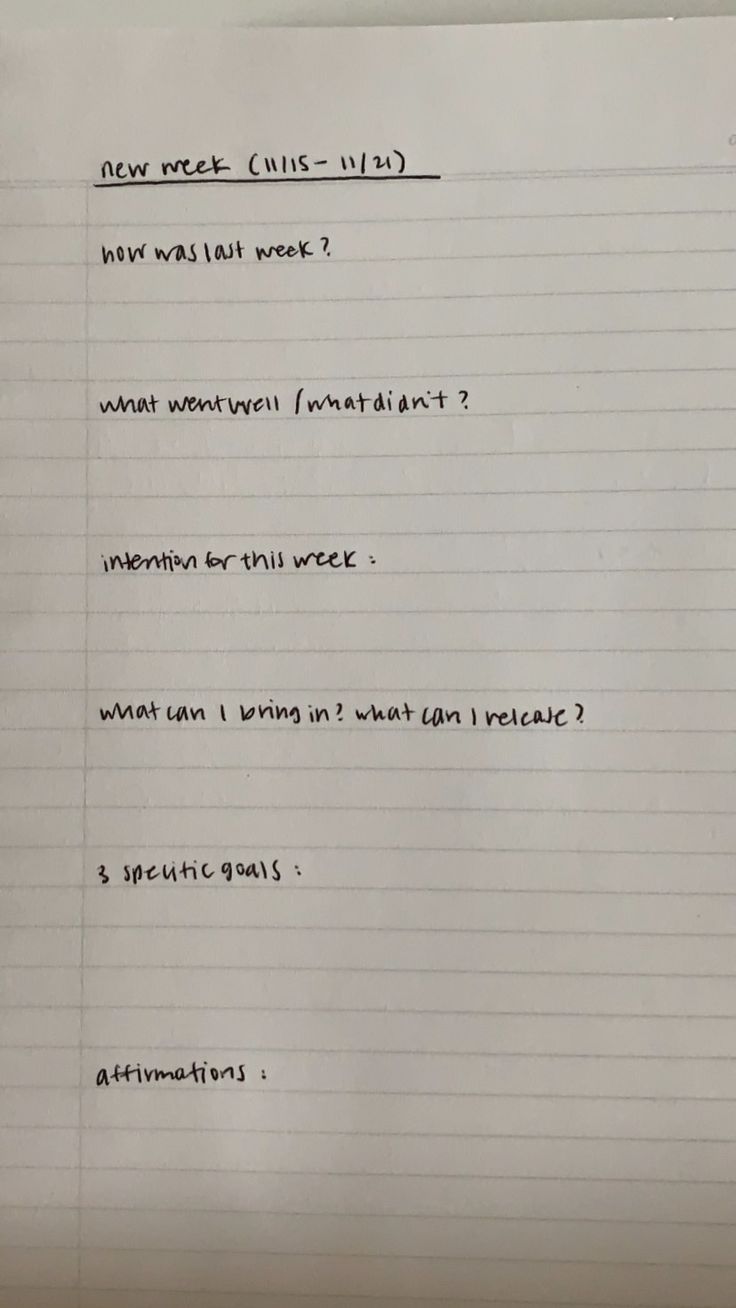 new week (11/15 - 11/21)
how was last week?
what went well / what didn't?
intention for this week:
what can I bring in? what can I release?
3 specific goals:
affirmations: